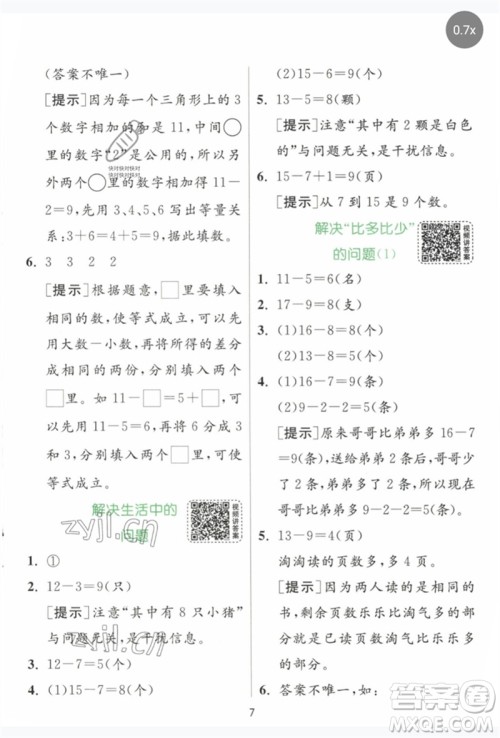 0.7x
(答案不唯一)
[提示]因为每一个三角形上的3
个数字相加的和是11,中间○
里的数字“2”是公用的,所以另
外两个○里的数字和是11-
2=9,先用3、4、5、6写出等式
3+6=4+5=9,据此填数。
6. 3 3 2 2
[提示]根据题意,□里要填入
相同的数,使等式成立,可以先
用大数-小数,再将所得的差分
成相同的两份,分别填入两个
□里。如 11-□=5+□,可
以先用11-5=6,再将6分成3
和3,分别填入两个□里,即可
使等式成立。
解决生活中的
问题
视频讲答案
1. ①
2. 12-3=9(只)
[提示]注意“其中有8只小猪”
与问题无关,是干扰信息。
3. 12-7=5(个)
4. (1)15-7=8(个)
(2)15-6=9(个)
5. 13-5=8(颗)
[提示]注意“其中有2颗是白色
的”与问题无关,是干扰信息。
6. 15-7+1=9(页)
[提示]从7到15是9个数。
解决“比多比少”
的问题(1)
视频讲答案
1. 11-5=6(名)
2. 17-9=8(支)
3. (1)16-8=8(个)
(2)13-8=5(个)
4. (1)16-7=9(条)
(2)9-2-2=5(条)
[提示]原来哥哥比弟弟多16-7
=9(条),送给弟弟2条,就相差
9-2-2=5(条)。
5. 13-9=4(页)
淘淘读的页数多,多4页。
[提示]因为两人读的相同,所以
剩余页数乐乐比淘气多的部分
就是已读页数淘气比乐乐多
的部分。
6. 答案不唯一,如:
7
快对快对快对
快对快对快对
zyjl.cn
zyjl.cn
作业精灵